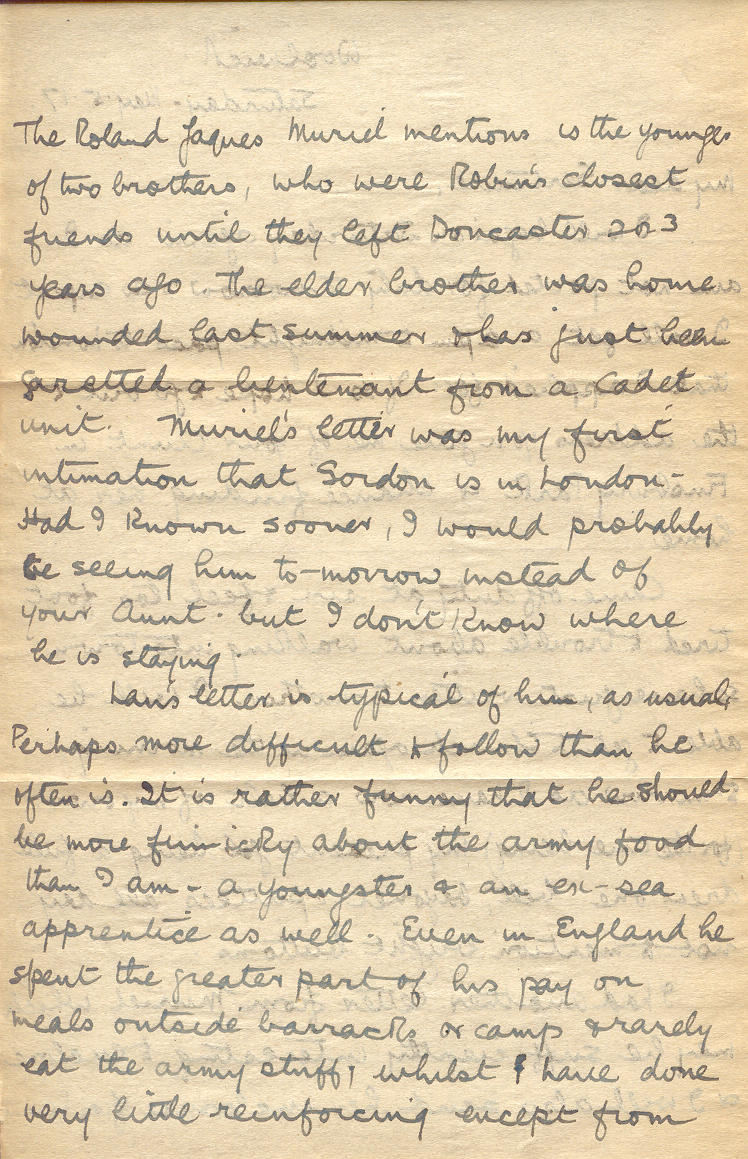 The Roland Jaques Muriel mentions is the younges
of two brothers, who were Robin's closest
friends until they left Doncaster 2 or 3
years ago The elder brother was home
wounded last summer & has just been
gazetted a lieutenant from a Cadet
unit. Muriel's letter was my first
intimation that Gordon is in London -
Had I known sooner, I would probably
be seeing him to-morrow instead of
your Aunt. but I don't know where
he is staying
Ian's letter is typical of him, as usual,
Perhaps more difficult to follow than he
often is. It is rather funny that he should
be more finicky about the army food
than I am - a youngster & an ex-sea
apprentice as well. Even in England he
spent the greater part of his pay on
meals outside barracks or camp & rarely
eat the army stuff; whilst I have done
very little reinforcing except from